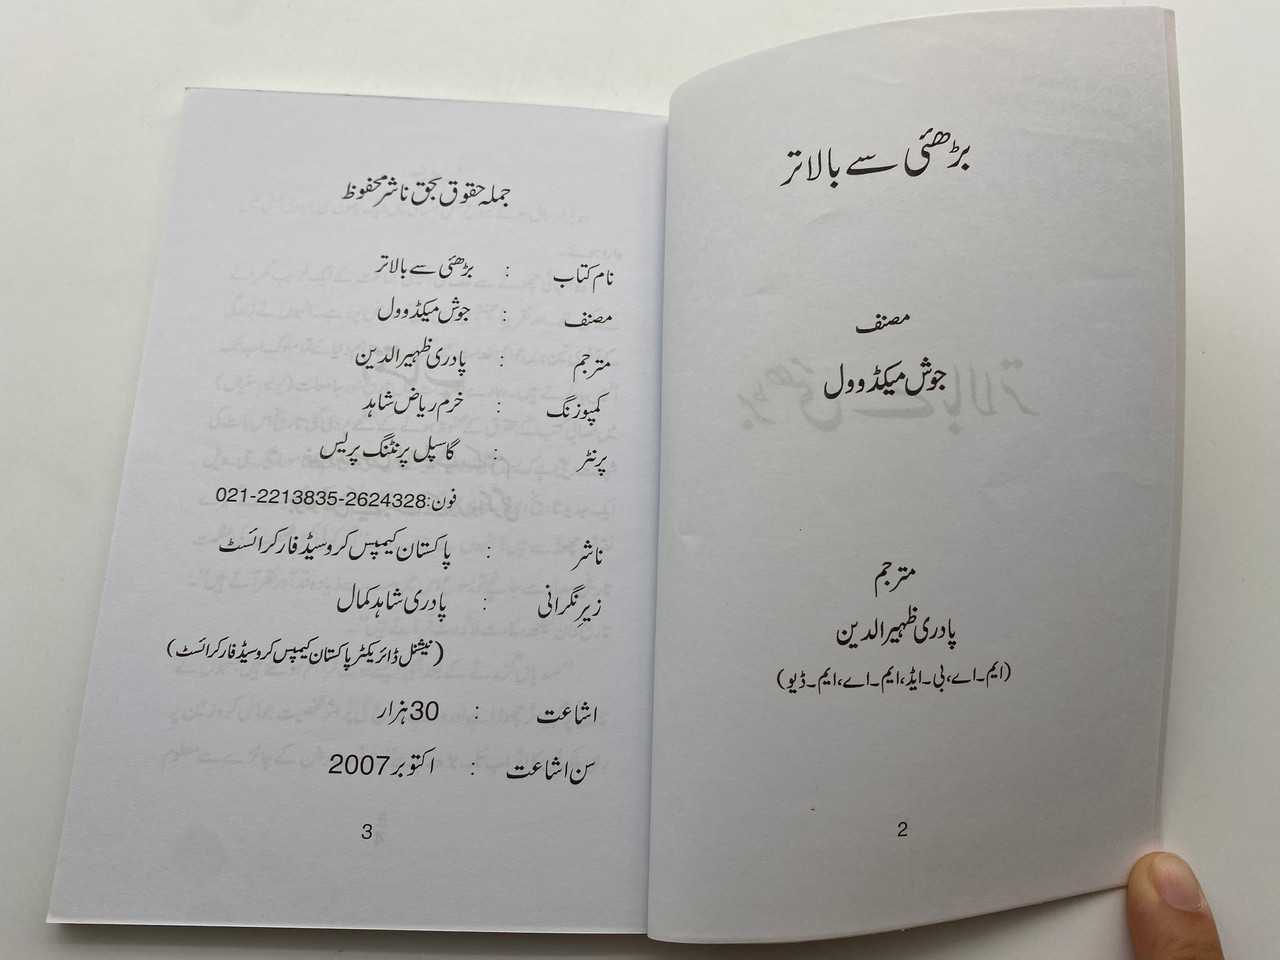 بڑھئی سے بالاتر
مصنف
جوش میکڈوول
مترجم
پادری ظہیرالدین
(ایم۔اے،بی۔ایڈ،ایم۔اے،ایم۔ڈیو)
2
جملہ حقوق بحق ناشر محفوظ
نام کتاب : بڑھئی سے بالاتر
مصنف : جوش میکڈوول
مترجم : پادری ظہیرالدین
کمپوزنگ : خرم ریاض شاہد
پرنٹر : گاسپل پرنٹنگ پریس
فون:021-2213835-2624328
ناشر : پاکستان کیمپس کروسیڈ فار کرائسٹ
زیرِنگرانی : پادری شاہد کمال
(نیشنل ڈائریکٹر پاکستان کیمپس کروسیڈ فار کرائسٹ)
اشاعت : 30 ہزار
سن اشاعت : اکتوبر 2007
3